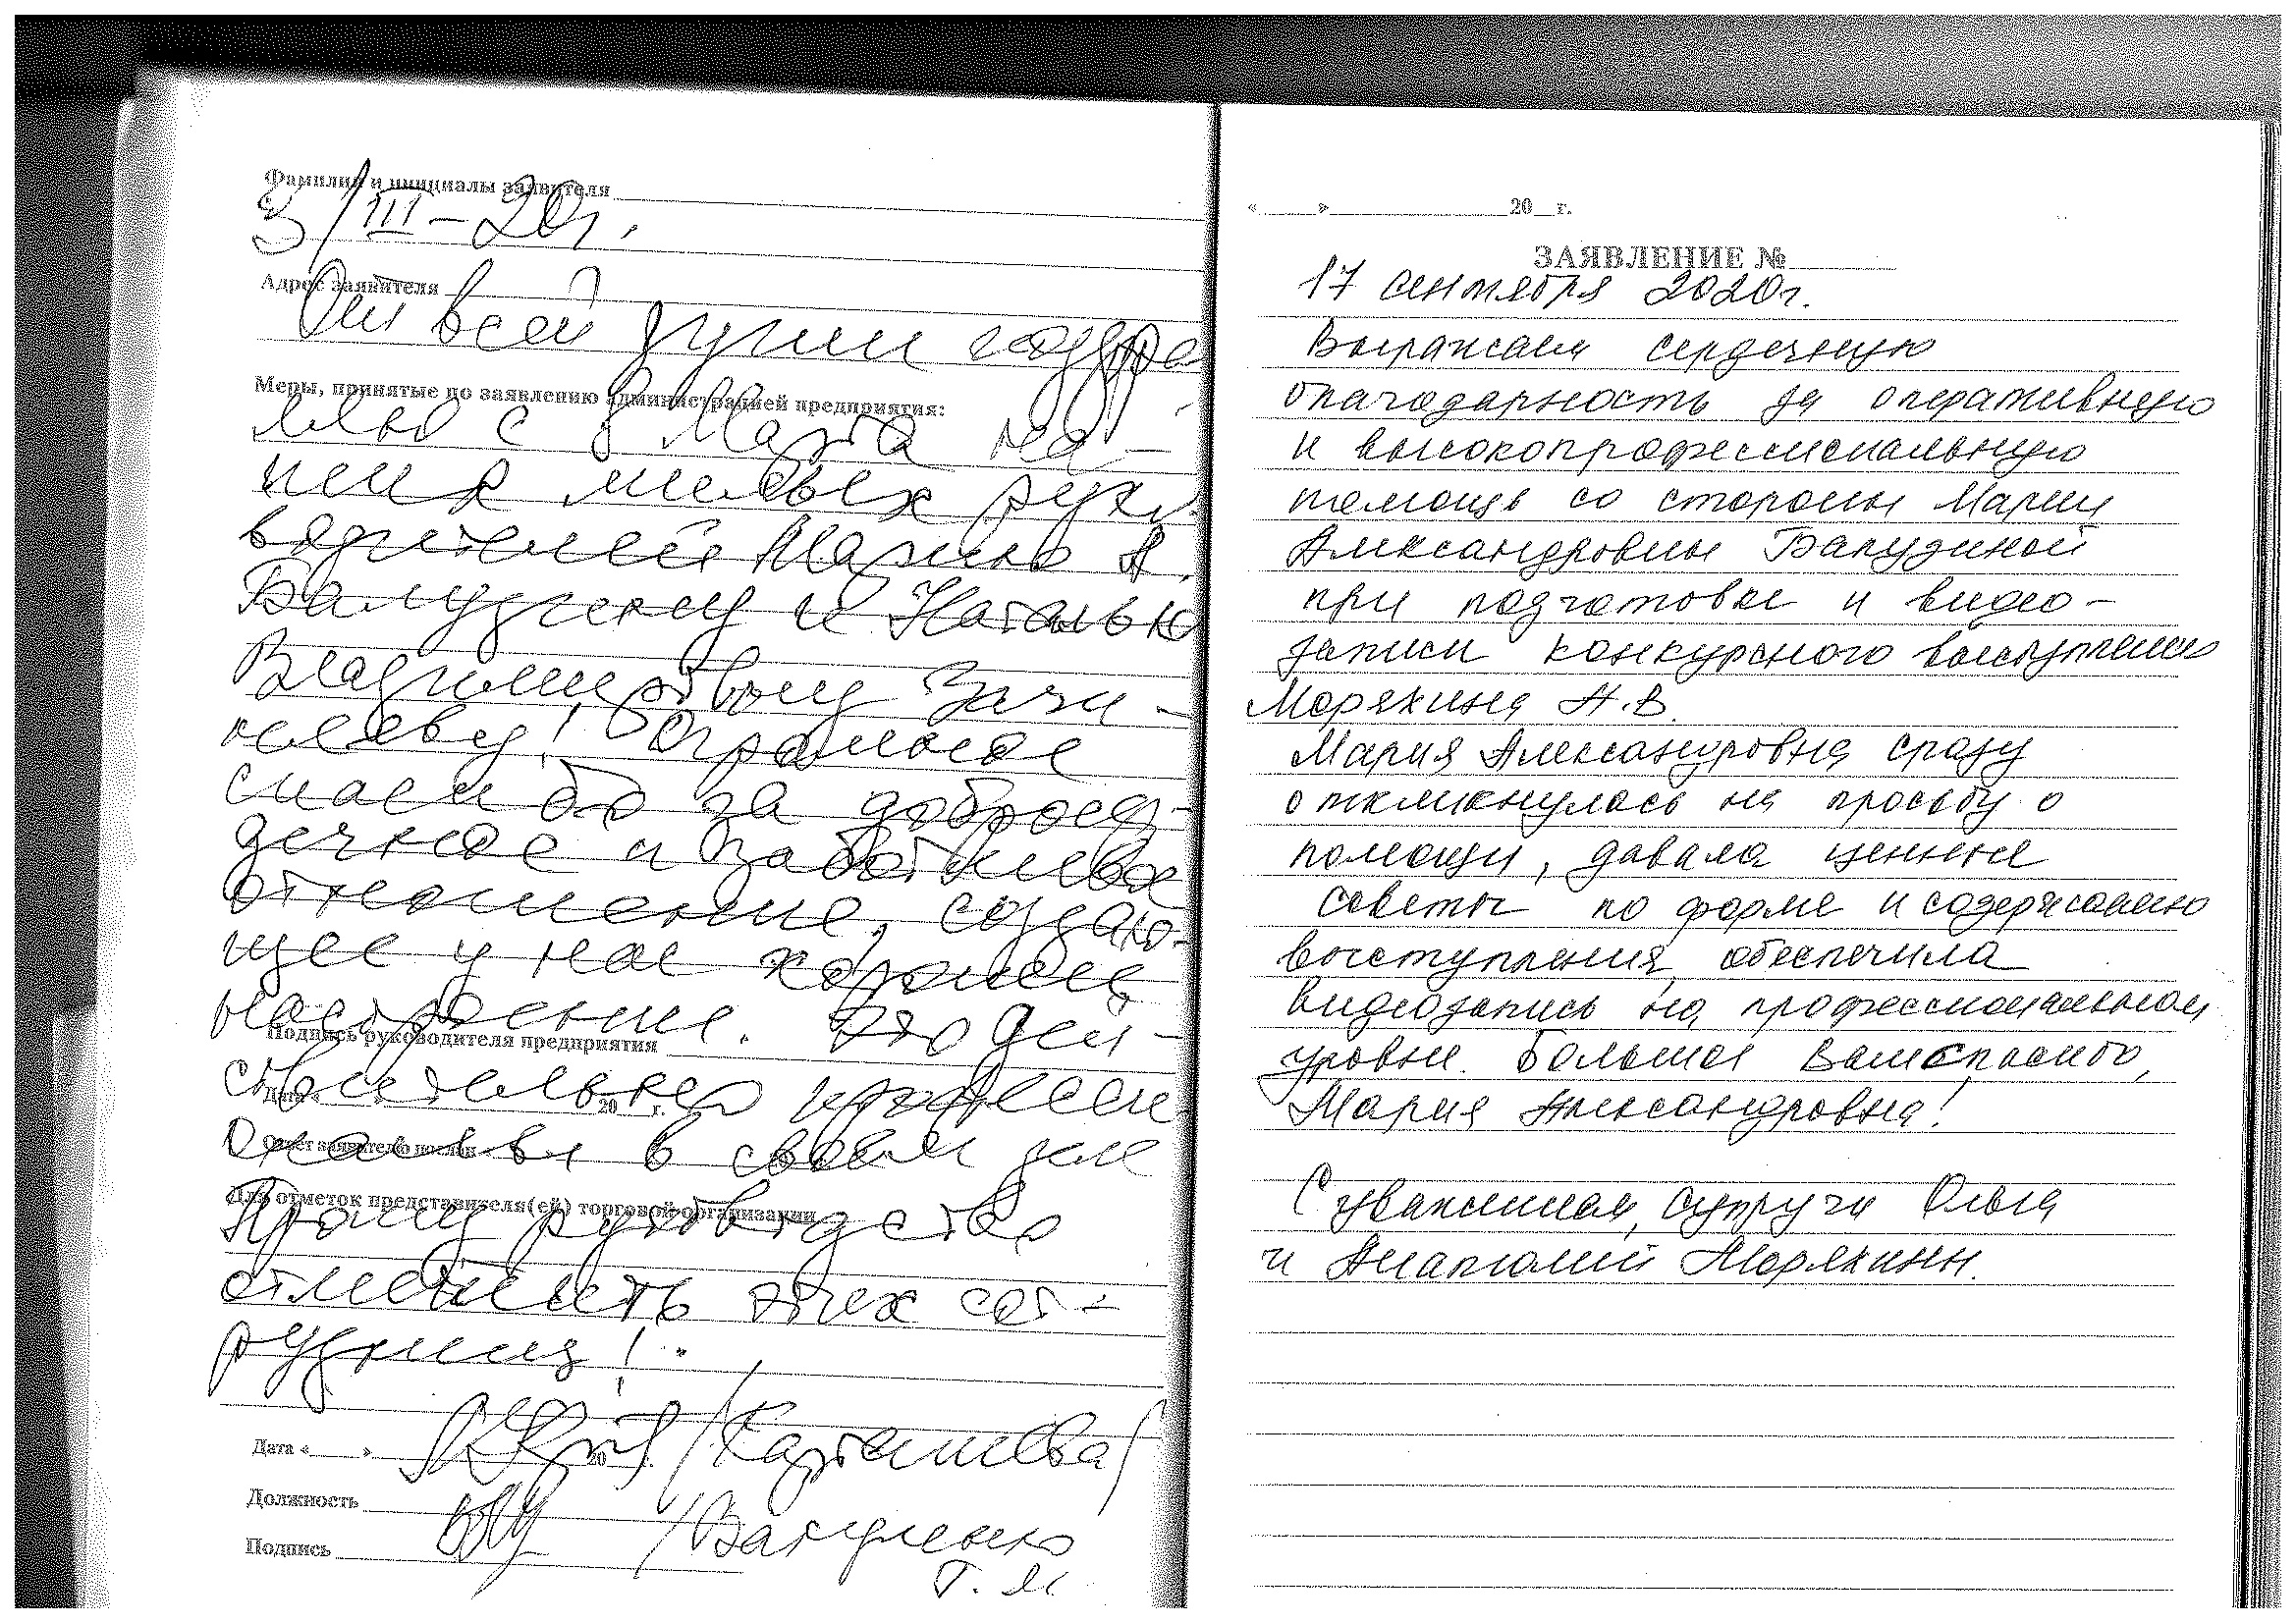 Фамилия и инициалы заявителя
3/III-20г.
Адрес заявителя
От всей души поздрав
Меры, принятые по заявлению администрацией предприятия:
ляю с 8 Марта на-
ших милых руко
водителей Марию А.
Балудину и Наталью
Владимировну
! Огромное
спасибо за добросер-
дечное и заботливое
отношение, создаю-
щее у нас хорошее
настроение. Это дей-
Подпись руководителя предприятия
ствительно професси
Дата « » 20 г.
оналы в своем деле
Ответ заявителю послан
Для отметок представителя(ей) торговой организации
Прошу руководство
отметить этих сот-
рудниц!
/Карташева/
Дата « » 20
Должность
/Ващенко
Подпись
Г. М.
« » 20 г.
ЗАЯВЛЕНИЕ №
17 сентября 2020г.
Выражаем сердечную
благодарность за оперативную
и высокопрофессиональную
помощь со стороны Марии
Александровны Балудиной
при подготовке и видео-
записи конкурсного выступления
Морякина А.В.
Мария Александровна сразу
откликнулась на просьбу о
помощи, давала ценные
советы по форме и содержанию
выступления, обеспечила
видеозапись на профессиональном
уровне. Большое Вам спасибо,
Мария Александровна!
С уважением, супруги Ольга
и Анатолий Морякины.